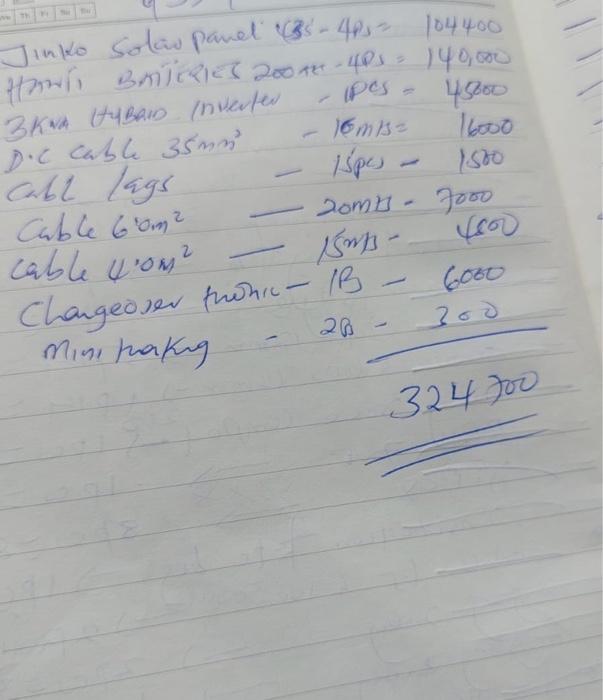 Jinko Solar panel - 4Ps = 104400
BATTERIES 200AH - 4Ps = 140,000
3KVA HyBRID Inverter - 1PCS = 45000
D.C Cable 35mm² - 16mts = 16000
Cabl lags - 15pcs - 1500
Cable 6.0m² - 20mts - 7000
Cable 4.0m² - 15mts - 4500
Changeover - 1P - 6000
Mini - 2P - 300
324700